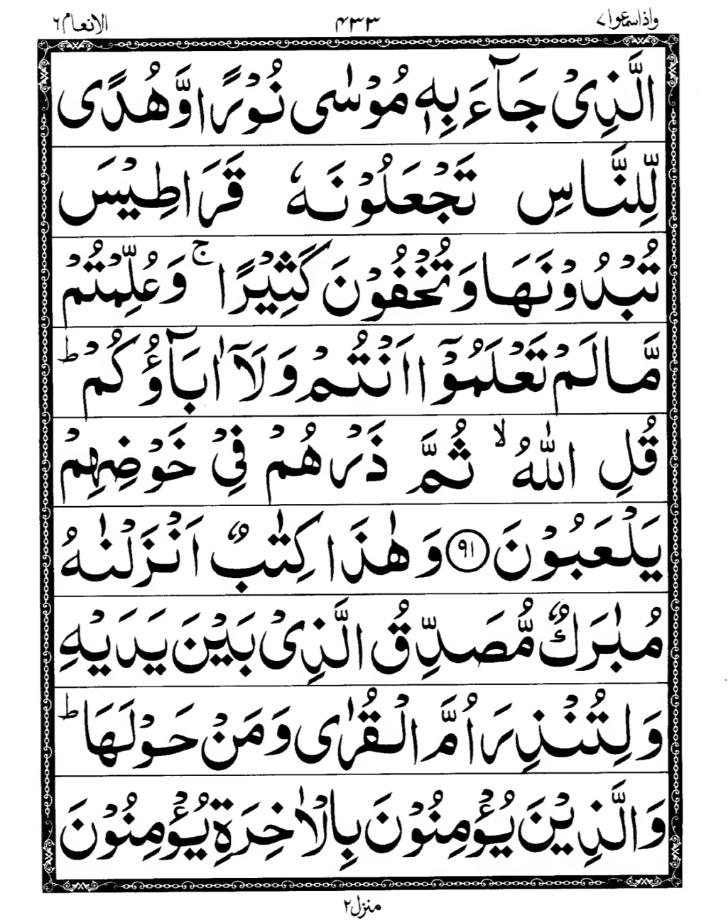 واذاسمعوا٧ ٤٣٣ الانعام٦
الَّذِىْ جَآءَ بِهٖ مُوْسٰى نُوْرًا وَّهُدًى
لِّلنَّاسِ تَجْعَلُوْنَهٗ قَرَاطِيْسَ
تُبْدُوْنَهَا وَتُخْفُوْنَ كَثِيْرًا ۚ وَعُلِّمْتُمْ
مَّا لَمْ تَعْلَمُوْٓا اَنْتُمْ وَلَآ اٰبَآؤُكُمْ ؕ
قُلِ اللّٰهُ ۙ ثُمَّ ذَرْهُمْ فِىْ خَوْضِهِمْ
يَلْعَبُوْنَ ﴿٩١﴾ وَهٰذَا كِتٰبٌ اَنْزَلْنٰهُ
مُبٰرَكٌ مُّصَدِّقُ الَّذِىْ بَيْنَ يَدَيْهِ
وَلِتُنْذِرَ اُمَّ الْقُرٰى وَمَنْ حَوْلَهَا ؕ
وَالَّذِيْنَ يُؤْمِنُوْنَ بِالْاٰخِرَةِ يُؤْمِنُوْنَ
منزل٢